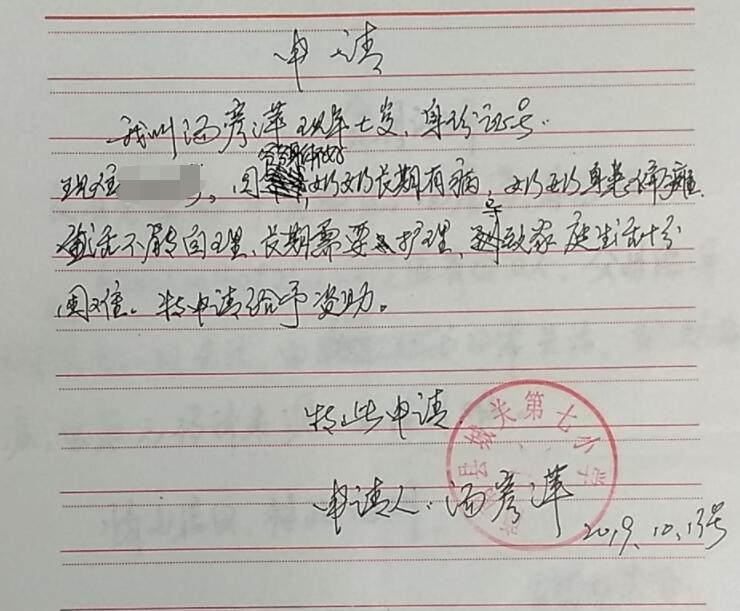 申请
我叫汤彦萍现年七岁、身份证号
现住 。因爷爷身体不好
奶奶长期有病，奶奶身患偏瘫
生活不能自理、长期需要人护理，导致家庭生活十分
困难。特申请给予资助。
特此申请
申请人：汤彦萍
2019、10、13号
县城关第七小学